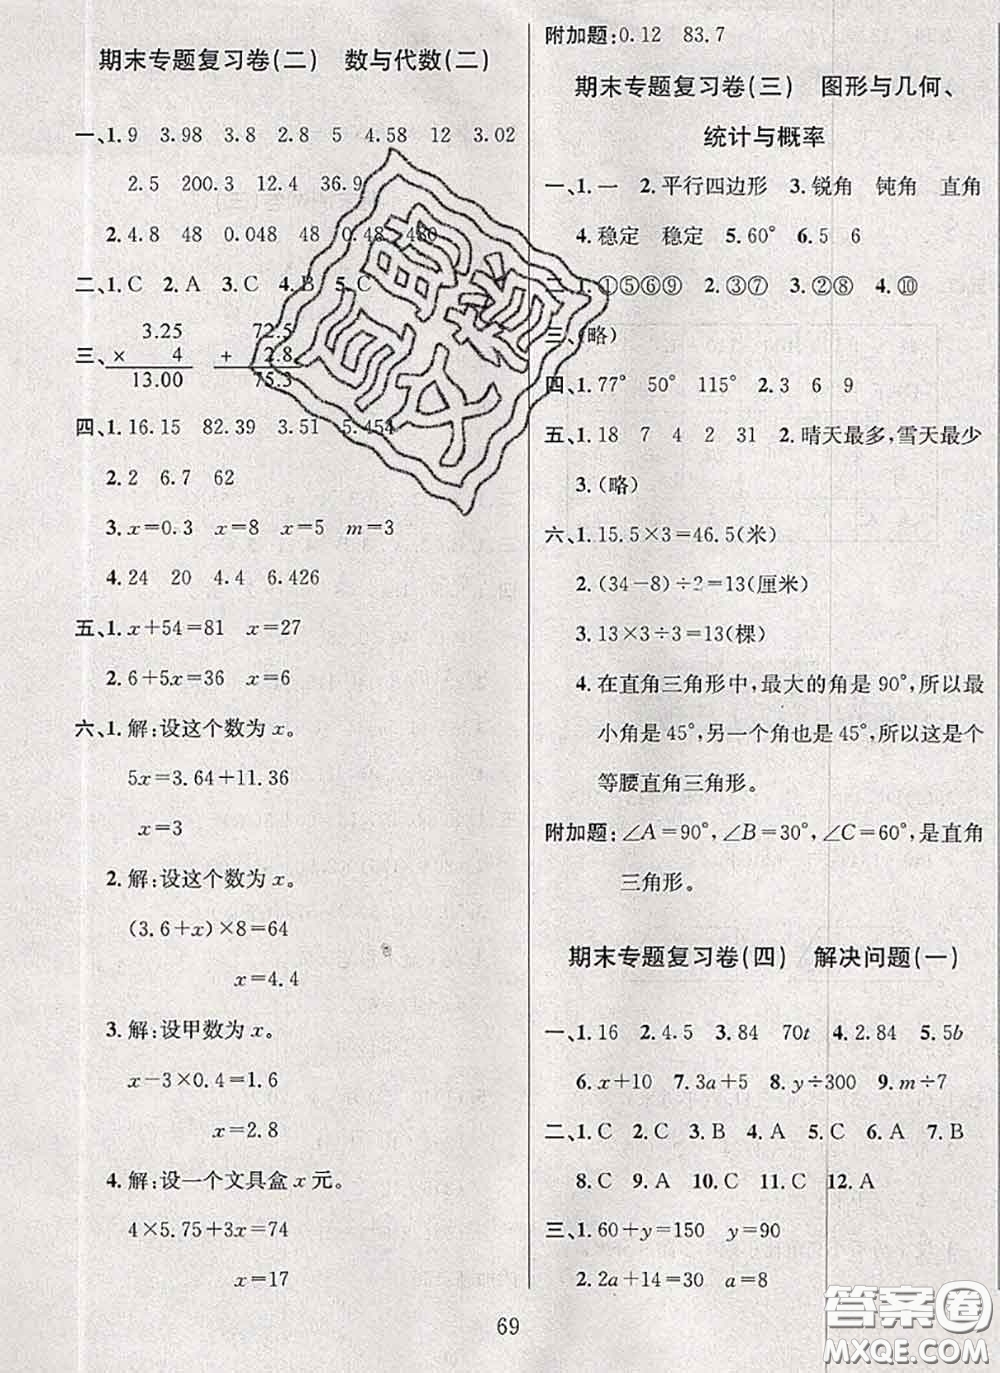 期末专题复习卷(二) 数与代数(二)
一、1.9 3.98 3.8 2.8 5 4.58 12 3.02
2.5 200.3 12.4 36.9
2.4.8 48 0.048 48 0.48 480
二、1.C 2.A 3.C 4.B 5.C
三、
3.25
× 4
13.00
72.5
+ 2.8
75.3
四、1.16.15 82.39 3.51 5.454
2.2 6.7 62
3.x=0.3 x=8 x=5 m=3
4.24 20 4.4 6.426
五、1.x+54=81 x=27
2.6+5x=36 x=6
六、1.解:设这个数为 x。
5x=3.64+11.36
x=3
2.解:设这个数为 x。
(3.6+x)×8=64
x=4.4
3.解:设甲数为 x。
x-3×0.4=1.6
x=2.8
4.解:设一个文具盒 x 元。
4×5.75+3x=74
x=17
附加题:0.12 83.7
期末专题复习卷(三) 图形与几何、
统计与概率
一、1.一 2.平行四边形 3.锐角 钝角 直角
4.稳定 稳定 5.60° 6.5 6
二、1.①⑤⑥⑨ 2.③⑦ 3.②⑧ 4.⑩
三、(略)
四、1.77° 50° 115° 2.3 6 9
五、1.18 7 4 2 31 2.晴天最多,雪天最少
3.(略)
六、1.15.5×3=46.5(米)
2.(34-8)÷2=13(厘米)
3.13×3÷3=13(棵)
4.在直角三角形中,最大的角是 90°,所以最
小角是 45°,另一个角也是 45°,所以这是个
等腰直角三角形。
附加题:∠A=90°,∠B=30°,∠C=60°,是直角
三角形。
期末专题复习卷(四) 解决问题(一)
一、1.16 2.4.5 3.84 70t 4.2.84 5.5b
6.x+10 7.3a+5 8.y÷300 9.m÷7
二、1.C 2.C 3.B 4.A 5.C 6.A 7.B
8.C 9.A 10.C 11.C 12.A
三、1.60+y=150 y=90
2.2a+14=30 a=8
69
答案卷
MXQE.COM